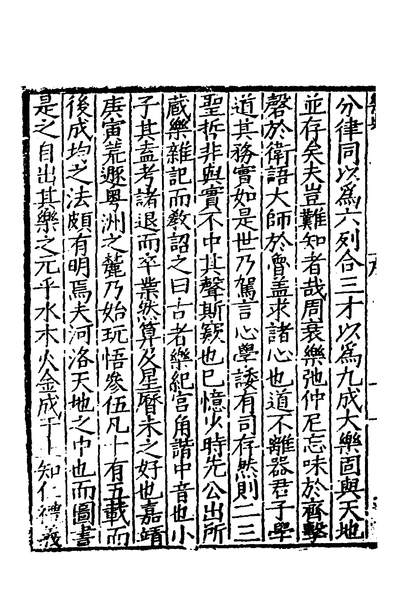 分律同以爲六列合三才以爲九成大樂固與天地
並存矣夫豈難知者哉周衰樂弛仲尼忘味於齊擊
磬於衛語大師於魯蓋求諸心也道不離器君子學
道其務實如是世乃駕言心學諉有司存然則二三
聖哲非與實不中其聲斯窾也已憶少時先公出所
蔵樂雜記而教詔之曰古者樂紀宫角諧中音也小
子其盍考諸退而卒業然算及星曆未之好也嘉靖
庚寅荒遯粤洲之麓乃始玩悟參伍凡十有五載而
後成均之法頗有明焉夫河洛天地之中也而圖書
是之自出其樂之元乎水木火金成于土知仁禮義